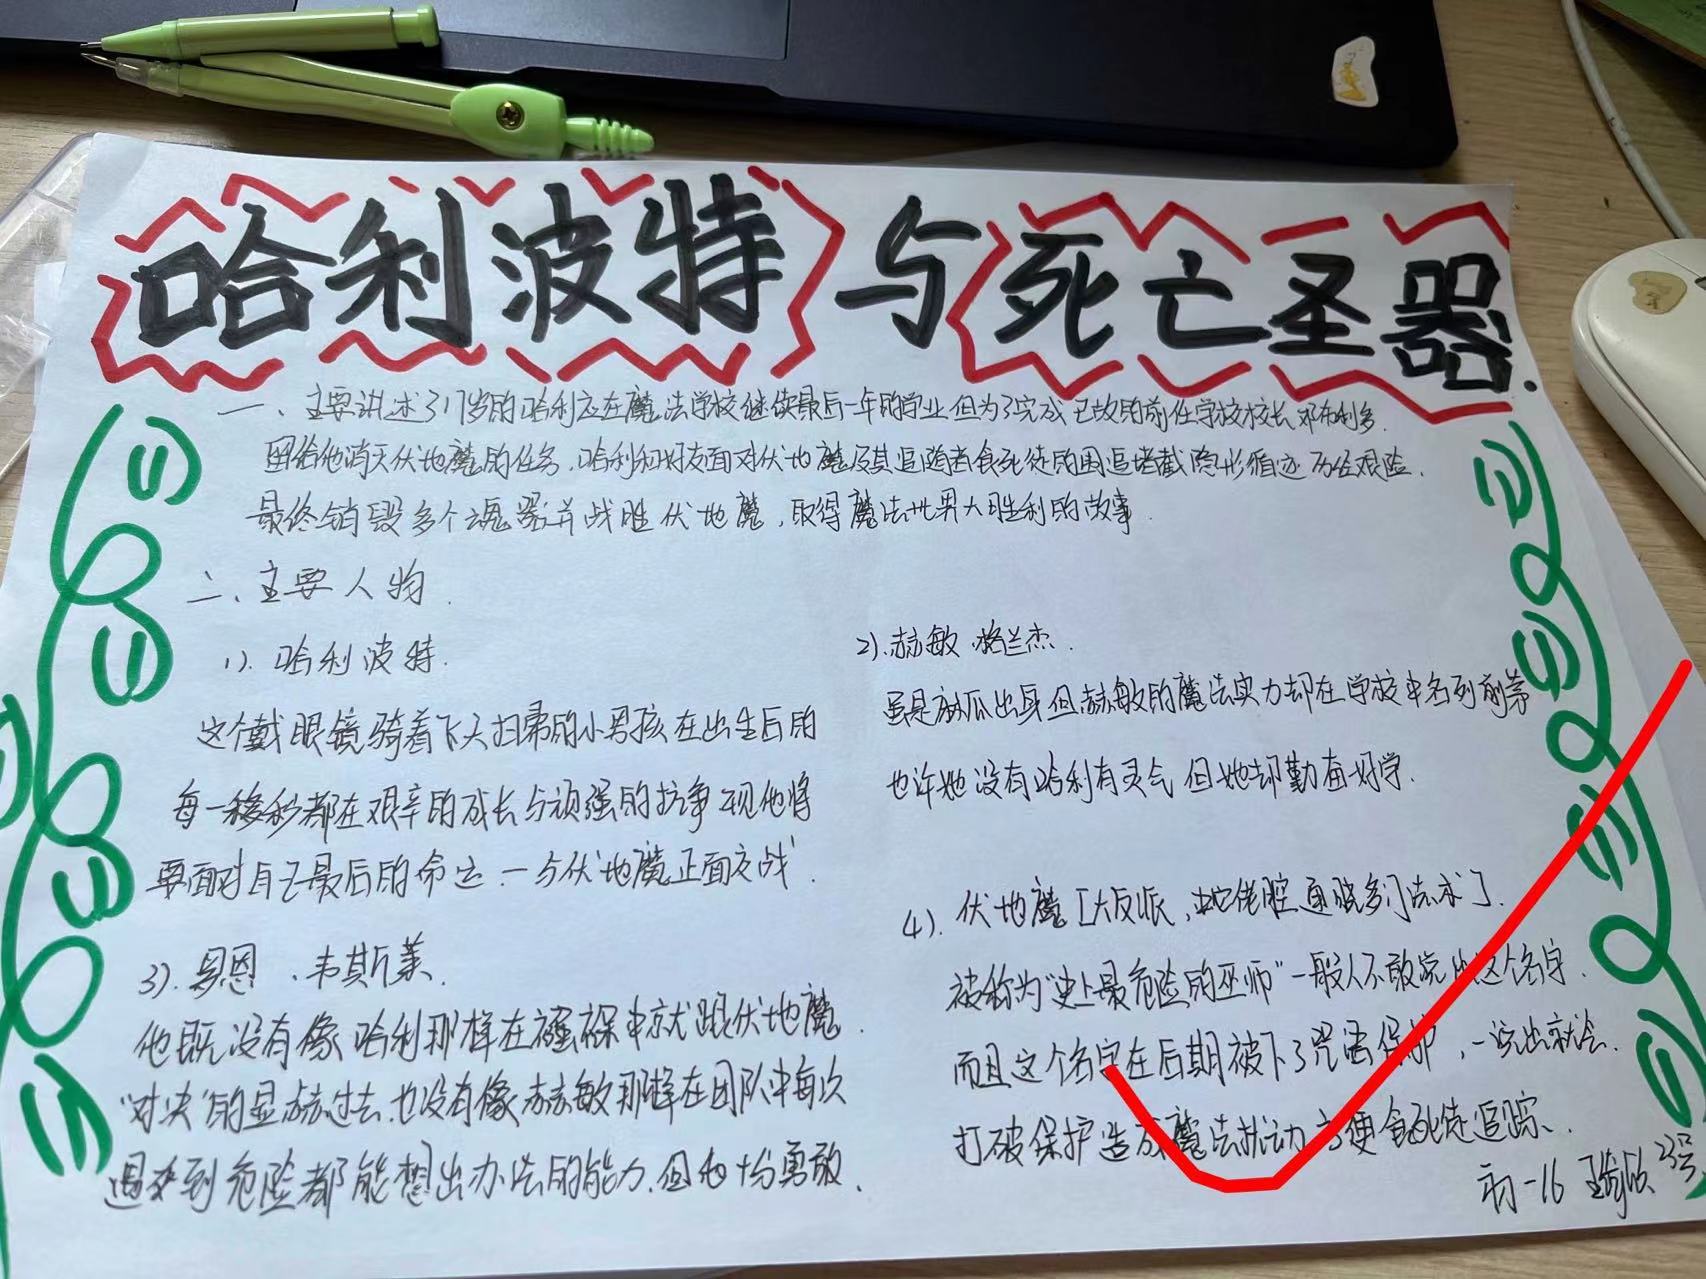 哈利波特与死亡圣器.
一、主要讲述了17岁的哈利应在魔法学校继续最后一年的学业但为了完成已故的前任学校校长邓布利多.
留给他消灭伏地魔的任务.哈利和好友面对伏地魔及其追随者食死徒的围追堵截隐形循迹历经艰险.
最终销毁多个魂器并战胜伏地魔,取得魔法世界大胜利的故事.
二、主要人物.
1).哈利波特.
这个戴眼镜骑着飞天扫帚的小男孩在出生后的
每一秒都在艰辛的成长与顽强的抗争现他将
要面对自己最后的命运.一与伏地魔正面交战'.
2).赫敏.格兰杰.
虽是麻瓜出身但赫敏的魔法实力却在学校中名列前茅
也许她没有哈利有灵气但她却勤奋好学.
3).罗恩.韦斯莱.
他既没有像哈利那样在襁褓中就跟伏地魔.
"对决"的显赫过去.也没有像赫敏那样在团队中每次
遇到危险都能想出办法的能力.但他十分勇敢.
4).伏地魔[大反派,蛇佬腔通晓多门法术].
被称为"史上最危险的巫师"一般人不敢说出这个名字.
而且这个名字在后期被下了咒语保护,一说出就会.
打破保护造成魔法扰动方便食死徒追踪、
初一16 23号